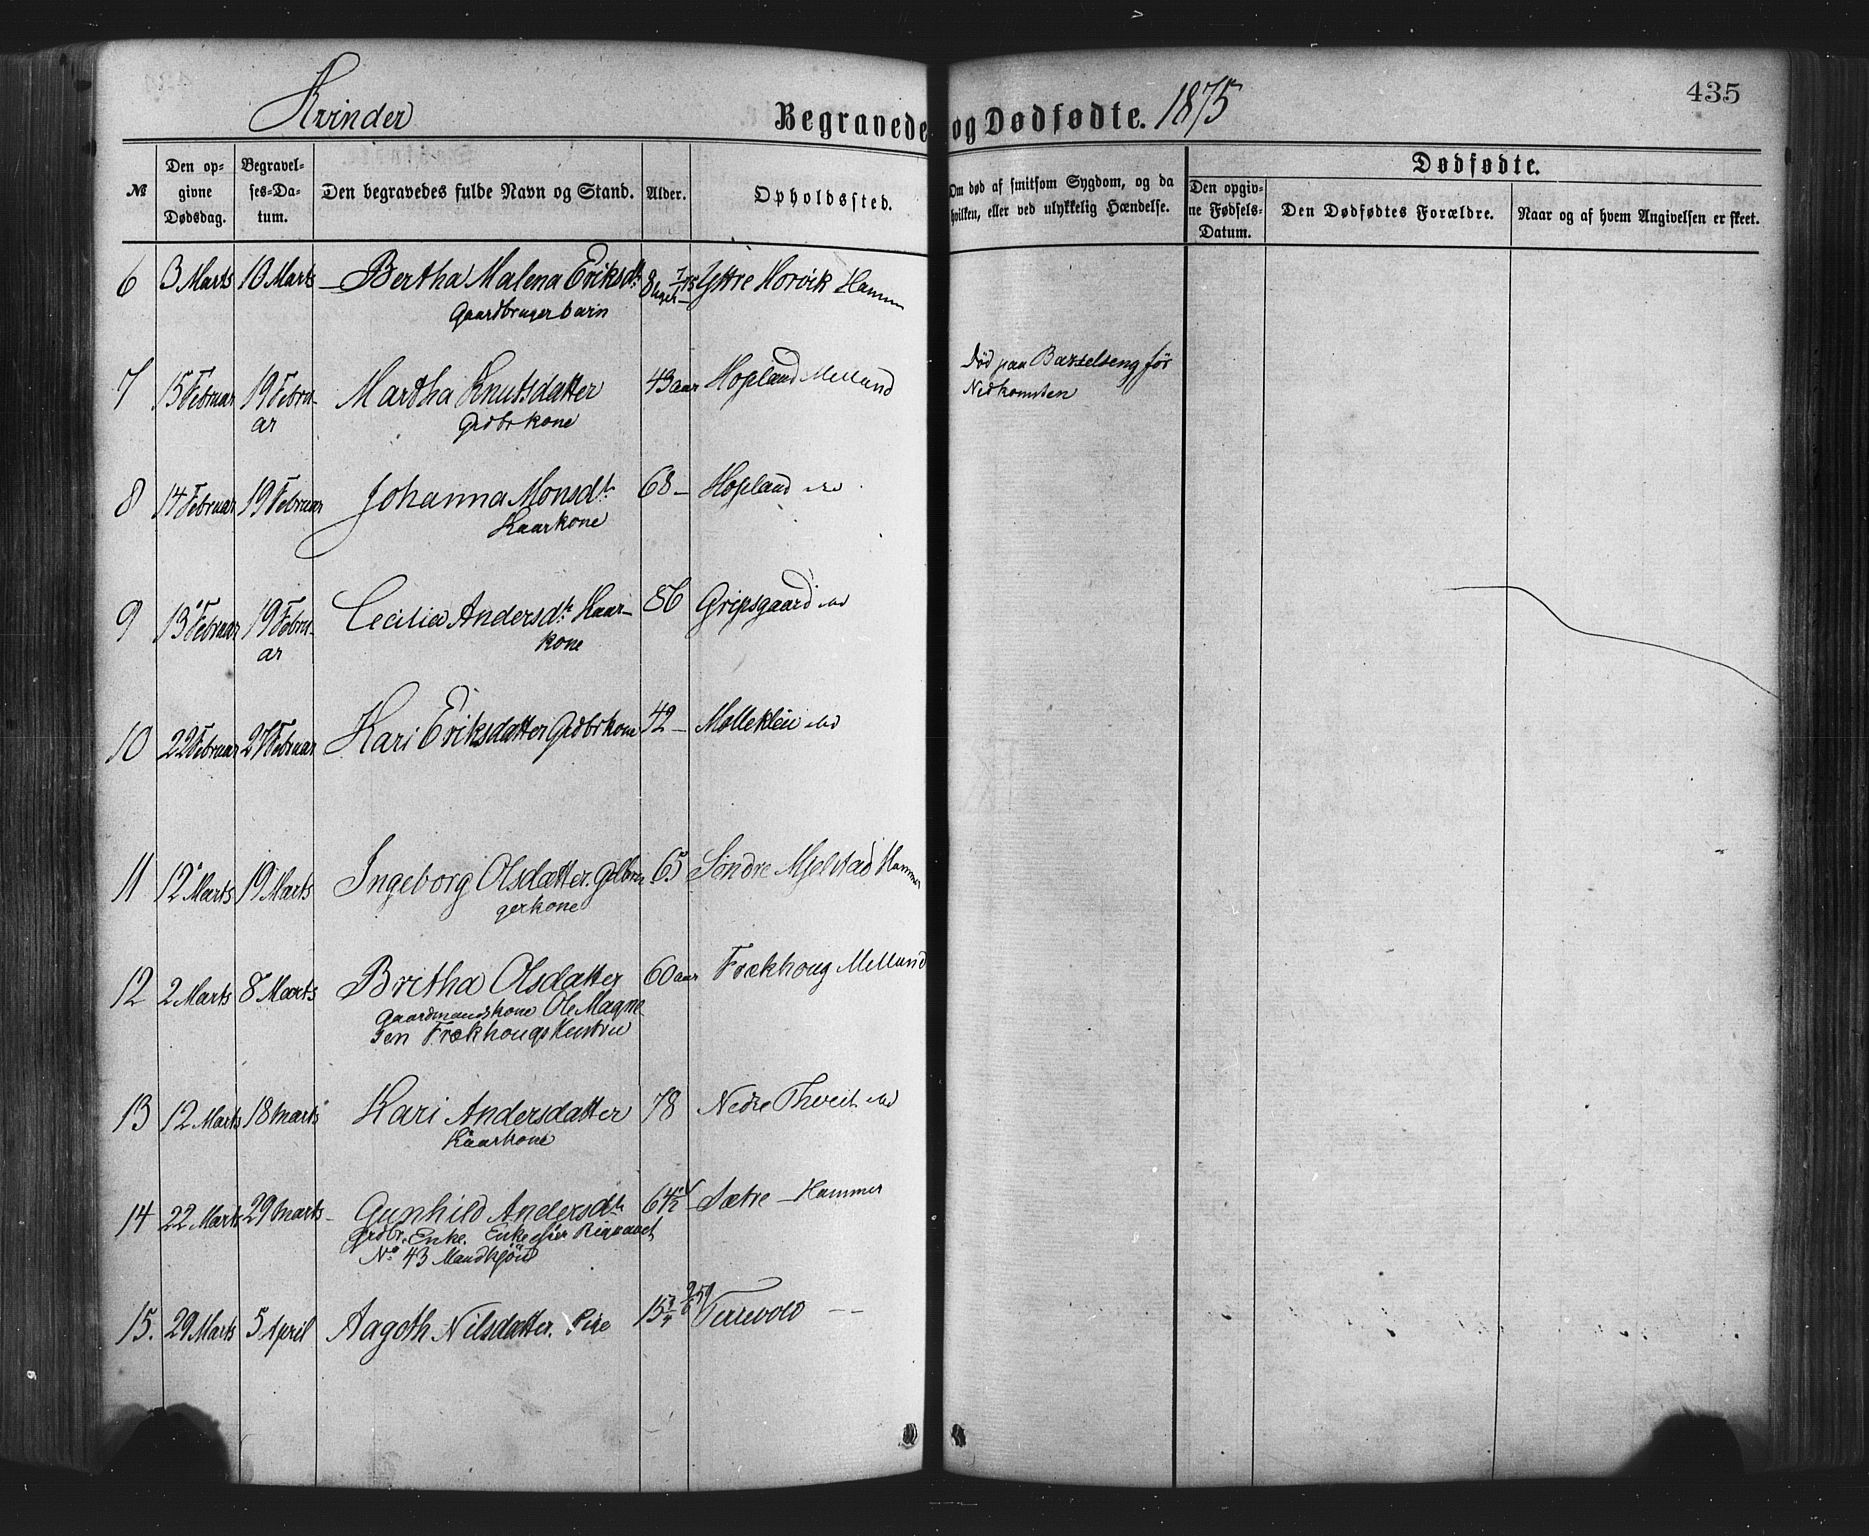 435
Kvinder
Begravede og Dødfødte. 1875
№
Den opgivne Dødsdag.
Begravelses-Datum.
Den begravedes fulde Navn og Stand.
Alder.
Opholdssted.
Om død af smitsom Sygdom, og da hvilken, eller ved ulykkelig Hændelse.
Dødfødte.
Den opgivne Fødsels-Datum.
Den Dødfødtes Forældre.
Naar og af hvem Angivelsen er skeet.
6 3 Marts 10 Marts Bertha Malena Eriksdtr 8 uger Yttre Horvik Hammer
Gaardbruger barn
7 15 Februar 19 Febru- Martha Knutsdatter 43 aar Hopland Melland Død paa Barselseng før
ar Grdbrkone Nedkomsten
8 14 Februar 19 Februar Johanna Monsdtr 68 – Hopland
Kaarkone
9 13 Februar 19 Febru- Cecilia Andersdtr Kaar- 86 Gripsgaard
ar kone
10 22 Februar 27 Februar Kari Eriksdatter Grdbrkone 42 – Molleklei
11 12 Marts 19 Marts Ingeborg Olsdatter. 65 Søndre Mjelstad Hammer
gerkone
12 2 Marts 8 Marts Britha Olsdatter 60 aar Frækhoug Melland
Gaardmandskone Ole Magne
sen Frækhougs Hustru
13 12 Marts 18 Marts Kari Andersdatter 78 Nedre Thveit
Kaarkone
14 22 Marts 29 Marts Gunhild Andersdtr 64½ Sætre – Hammer
Grdbr. Enke. Enke efter
No 43 Mandkjøn
15. 29 Marts 5 April Aagoth Nilsdatter. Pige 15¾ – –